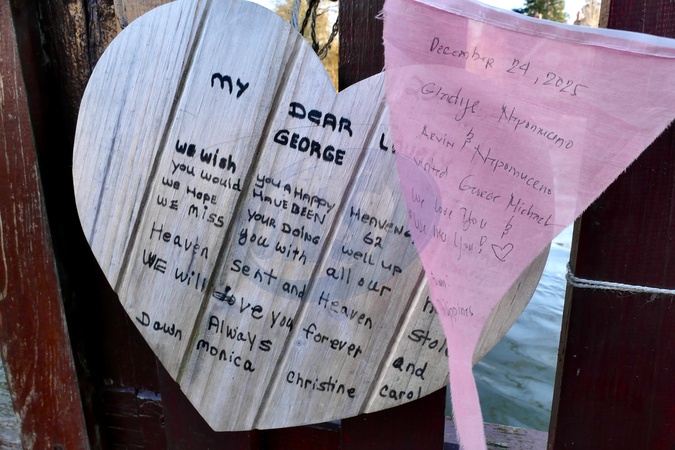 MY DEAR GEORGE
We wish you a Happy Heavenly 62
you would HAVE BEEN
We HOPE YOUR DOING well up
WE MISS you with all our
Heaven sent and Heaven stole
WE will love you forever and
Always
Dawn monica Christine carol
December 24, 2025
Gladys Nepomuceno
&
Arvin Nepomuceno
visited George Michael
We love You &
We miss You! ♡